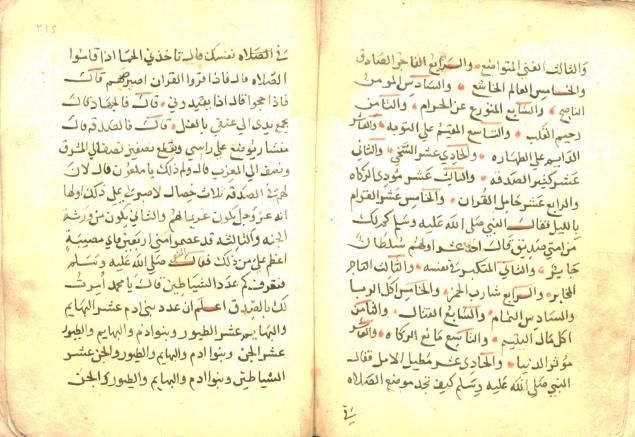 والثالث الغني المتواضع والرابع التاجر الصادق
والخامس العالم الخاشع والسادس المومن
الناصح والسابع المتورع عن الحرام والثامن
رحيم القلب والتاسع المقيم على التوبه والعاشر
الدايم على الطهاره والحادي عشر السخي والثاني
عشر كثير الصدقه والثالث عشر مودي الزكاه
والرابع عشر حامل القران والخامس عشر القوام
بالليل فقال النبي صلى الله عليه وسلم كم لك
من امتي صديق قال احد عشر اولهم سلطان
جاير والثاني المتكبر في نفسه والثالث التاجر
الخاين والرابع شارب الخمر والخامس اكل الربا
والسادس النمام والسابع القتال والثامن
اكل مال اليتيم والتاسع مانع الزكاه والعاشر
موثر الدنيا والحادي عشر مطيل الامل فقال
النبي صلى الله عليه وسلم كيف تجد موضع الصلاه
في
٢١٥
في الصلاه نفسك قال تاخذني الحما اذا قاموا
الصلاه قال فاذا قروا القران اصير كهم قال
فاذا حجوا قال اذا يقيد وني قال فالجهاد قال
يجمع يدي الى عنقي بالغل قال فالصدقه قال
منشار يوضع على راسي ويقطع نصفين نصف الى المشرق
ونصف الى المغرب قال ولم ذلك يا ملعون قال لان
لهم في الصدقه ثلاث خصال لا صبر لي على ذلك اولها
انه عز وجل يكون غريما لهم والثاني يكون من ورثة
الجنه والثالثه قد عصموا مني اربعين واي مصيبة
اعظم علي من ذلك فقال النبي صلى الله عليه وسلم
فتعرف كم عدد الشياطين قال يا محمد امرت
لك بالصدق اعلم ان عدد بني ادم عشر البهايم
والبهايم عشر الطيور وبنوا ادم والبهايم والطيور
عشر الجن وبنوا ادم والبهايم والطيور والجن عشر
الشياطين وبنوا ادم والبهايم والطيور والجن